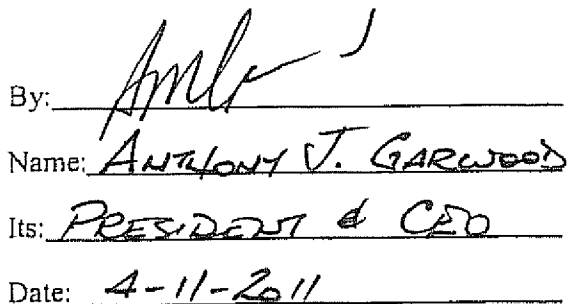 By:
Name: ANTHONY J. GARWOOD
Its: PRESIDENT & CEO
Date: 4-11-2011